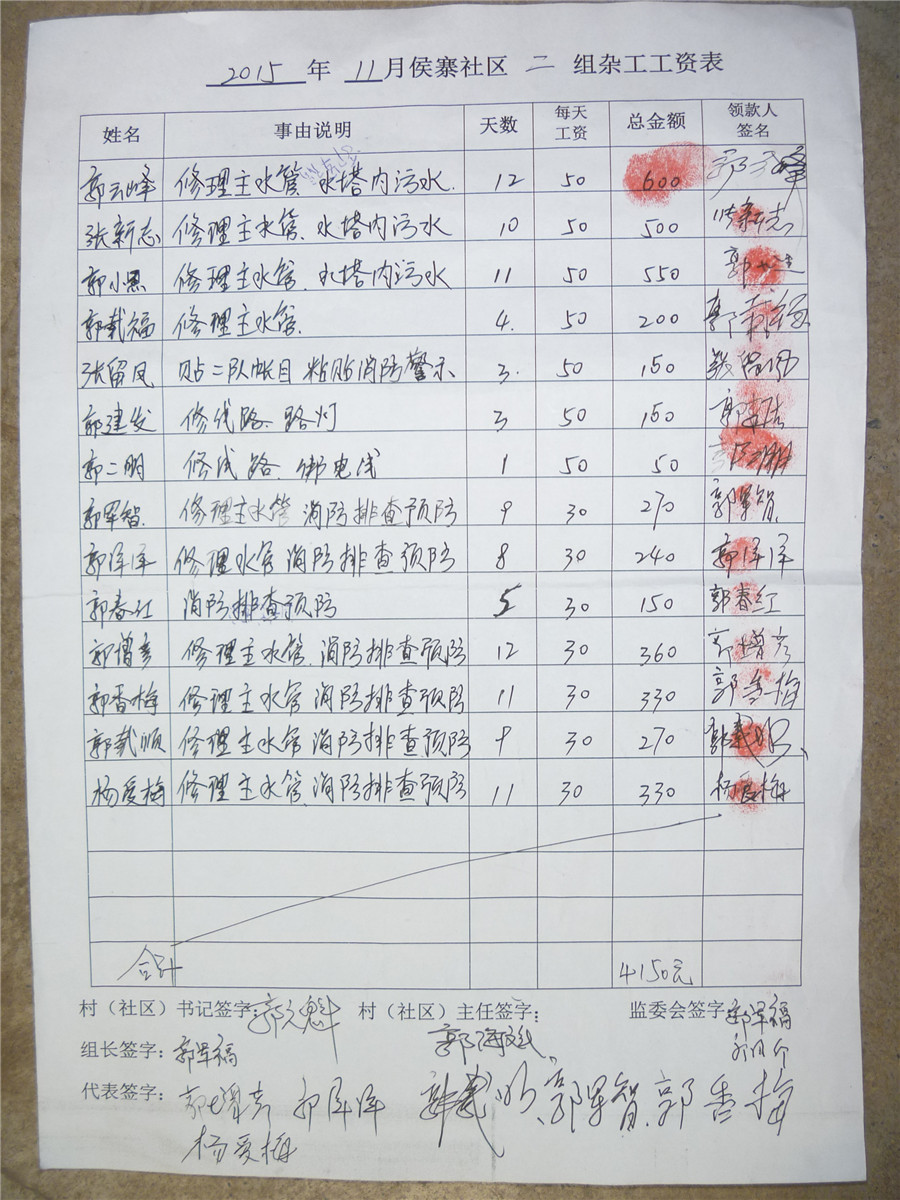 2015 年 11月侯寨社区 二 组杂工工资表
姓名 事由说明 天数 每天工资 总金额 领款人签名
郭云峰 修理主水管 水塔内污水. 12 50 600
张新志 修理主水管、水塔内污水 10 50 500 张新志
郭小黑 修理主水管、水塔内污水 11 50 550 郭
郭载福 修理主水管. 4. 50 200 郭载福
张留凤 贴二队帐目 粘贴消防警示 3. 50 150 张留凤
郭建发 修线路、路灯 3 50 150 郭建
郭二明 修线路、绑电线 1 50 50 明
郭军智. 修理主水管 消防排查预防 9 30 270 郭军智.
郭泽泽 修理水管 消防排查预防 8 30 240 郭泽泽
郭春红 消防排查预防 5 30 150 郭春红
郭增彦 修理主水管、消防排查预防 12 30 360 郭增彦
郭香梅 修理主水管 消防排查预防 11 30 330 郭香梅
郭载顺 修理主水管 消防排查预防 9 30 270 郭载
杨爱梅 修理主水管、消防排查预防 11 30 330 杨爱梅
合计 4150元
村（社区）书记签字: 郭 魁 村（社区）主任签字: 郭海 监委会签字: 郭军福
组长签字: 郭军福
代表签字: 郭 郭泽泽 郭载 郭军智. 郭香梅
杨爱梅